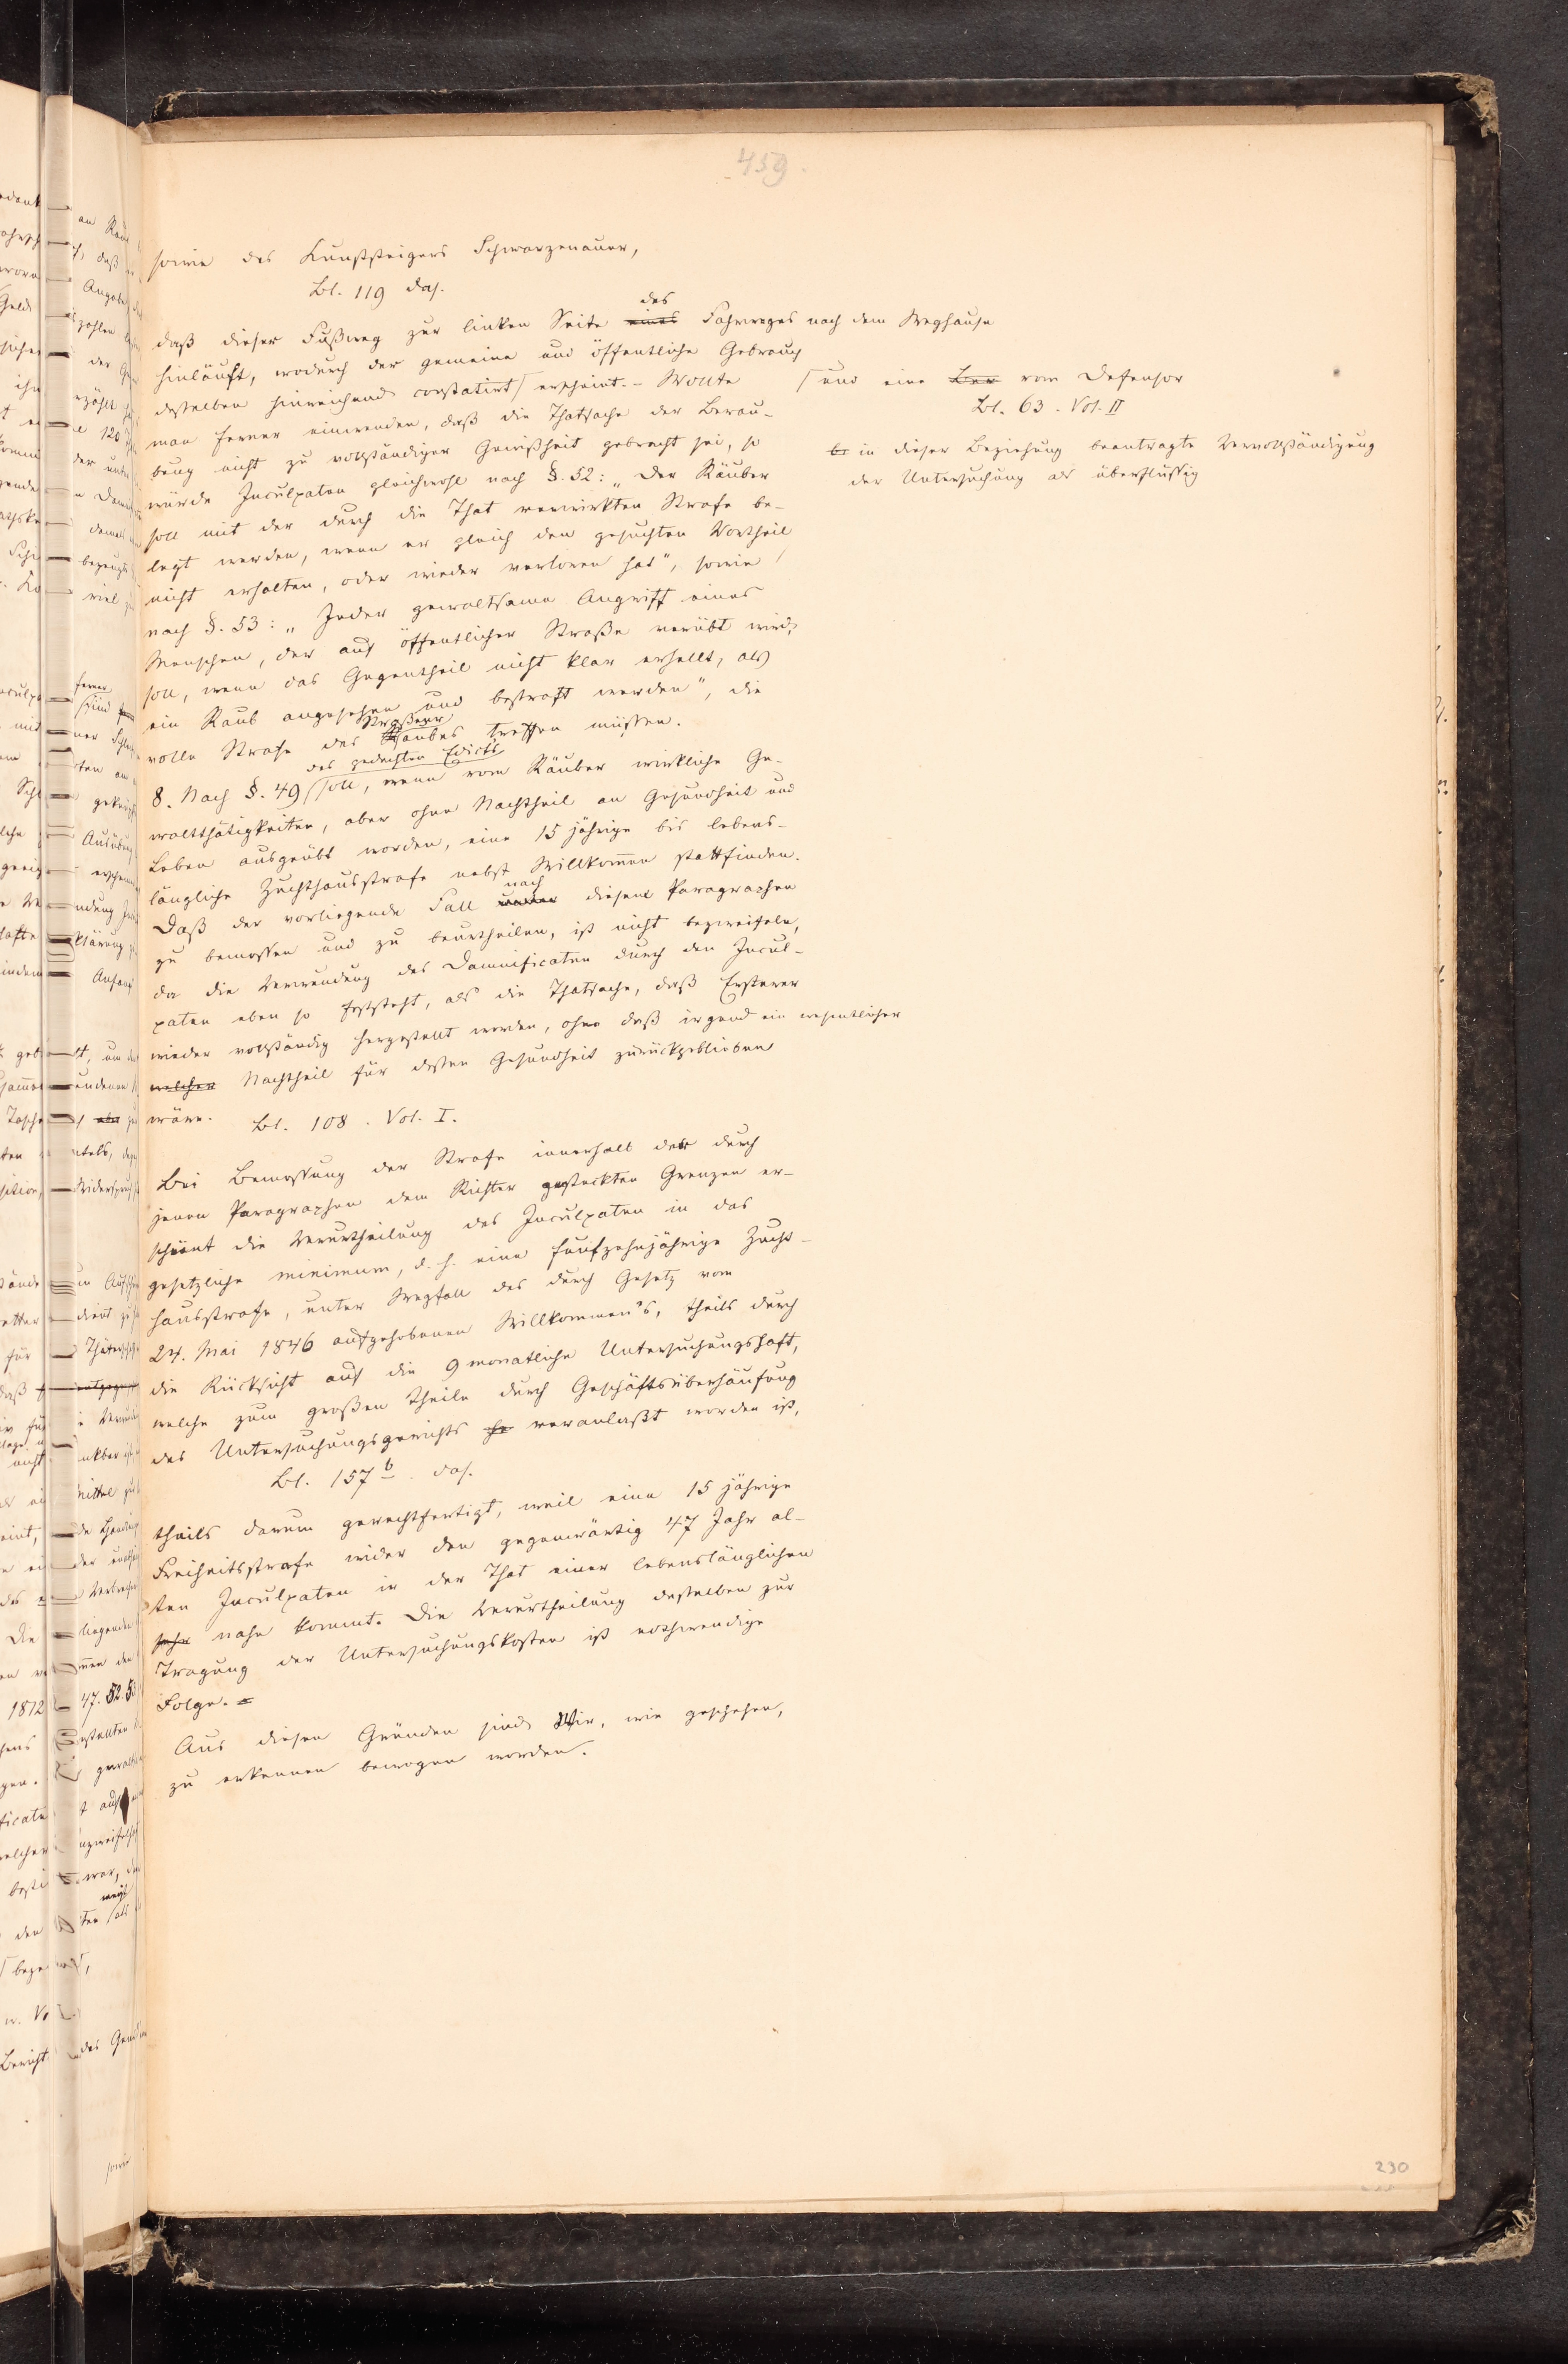 459.
sowie des Kunststeigers Schwarzenauer,
Bl. 119 das.
daß dieser Fußweg zur linken Seite eines des Fahrweges nach dem Weghause
hinläuft, wodurch der gemeine und öffentliche Gebrauch
desselben hinreichend constatirt erscheint. – Wollte
und eine vom Defensor
Bl. 63. Vol. II
in dieser Beziehung beantragte Vervollständigung
der Untersuchung als überflüssig
man ferner einwenden, daß die Thatsache der Berau-
bung nicht zu vollständiger Gewißheit gebracht sei, so
würde Inculpaten gleichwohl nach §. 52: „Der Räuber
soll mit der durch die That verwirkten Strafe be-
legt werden, wenn er gleich den gesuchten Vortheil
nicht erhalten, oder wieder verloren hat", sowie
nach §. 53: „Jeder gewaltsame Angriff eines
Menschen, der auf öffentlicher Straße verübt wird,
soll, wenn das Gegentheil nicht klar erhellt, als
ein Raub angesehen und bestraft werden", die
volle Strafe des Straßenraubes treffen müssen.
8. Nach §. 49 des gedachten Edicts soll, wenn vom Räuber wirkliche Ge-
waltthätigkeiten, aber ohne Nachtheil an Gesundheit und
Leben ausgeübt worden, eine 15 jährige bis lebens-
längliche Zuchthausstrafe nebst Willkommen stattfinden.
Daß der vorliegende Fall nach diesem Paragraphen
zu bemessen und zu beurtheilen, ist nicht bezweifeln,
da die Verwundung des Damnificaten durch den Incul-
paten eben so feststeht, als die Thatsache, daß Ersterer
wieder vollständig hergestellt worden, ohne daß irgend ein wesentlicher
welcher Nachtheil für dessen Gesundheit zurückgeblieben
wäre. Bl. 108. Vol. I.
Bei Bemessung der Strafe innerhalb der durch
jenen Paragraphen dem Richter gesteckten Grenzen er-
scheint die Verurtheilung des Inculpaten in das
gesetzliche minimum, d. h. eine funfzehnjährige Zucht-
hausstrafe, unter Wegfall des durch Gesetz vom
24. Mai 1846 aufgehobenen Willkommen's, theils durch
die Rücksicht auf die 9 monatliche Untersuchungshaft,
welche zum großen Theile durch Geschäftsüberhäufung
des Untersuchungsgerichts veranlaßt worden ist,
Bl. 157 b. das.
theils darum gerechtfertigt, weil eine 15 jährige
Freiheitsstrafe wider den gegenwärtig 47 Jahr al-
ten Inculpaten in der That einer lebenslänglichen
sehr nahe kommt. Die Verurtheilung desselben zur
Tragung der Untersuchungskosten ist nothwendige
Folge.
Aus diesen Gründen sind Wir, wie geschehen,
zu erkennen bewogen worden.
230